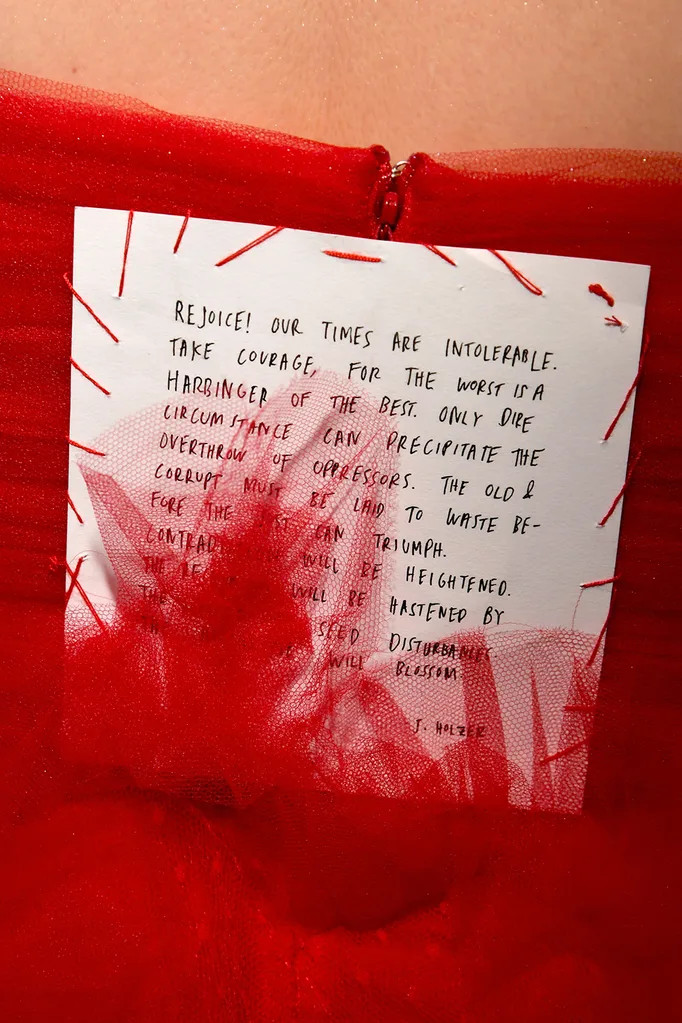 REJOICE! OUR TIMES ARE INTOLERABLE.
TAKE COURAGE, FOR THE WORST IS A
HARBINGER OF THE BEST. ONLY DIRE
CIRCUMSTANCE CAN PRECIPITATE THE
OVERTHROW OF OPPRESSORS. THE OLD &
CORRUPT MUST BE LAID TO WASTE BE-
FORE THE JUST CAN TRIUMPH.
WILL BE HEIGHTENED.
THE WILL BE HASTENED BY
SEED DISTURBANCES
WILL BLOSSOM
J. HOLZER